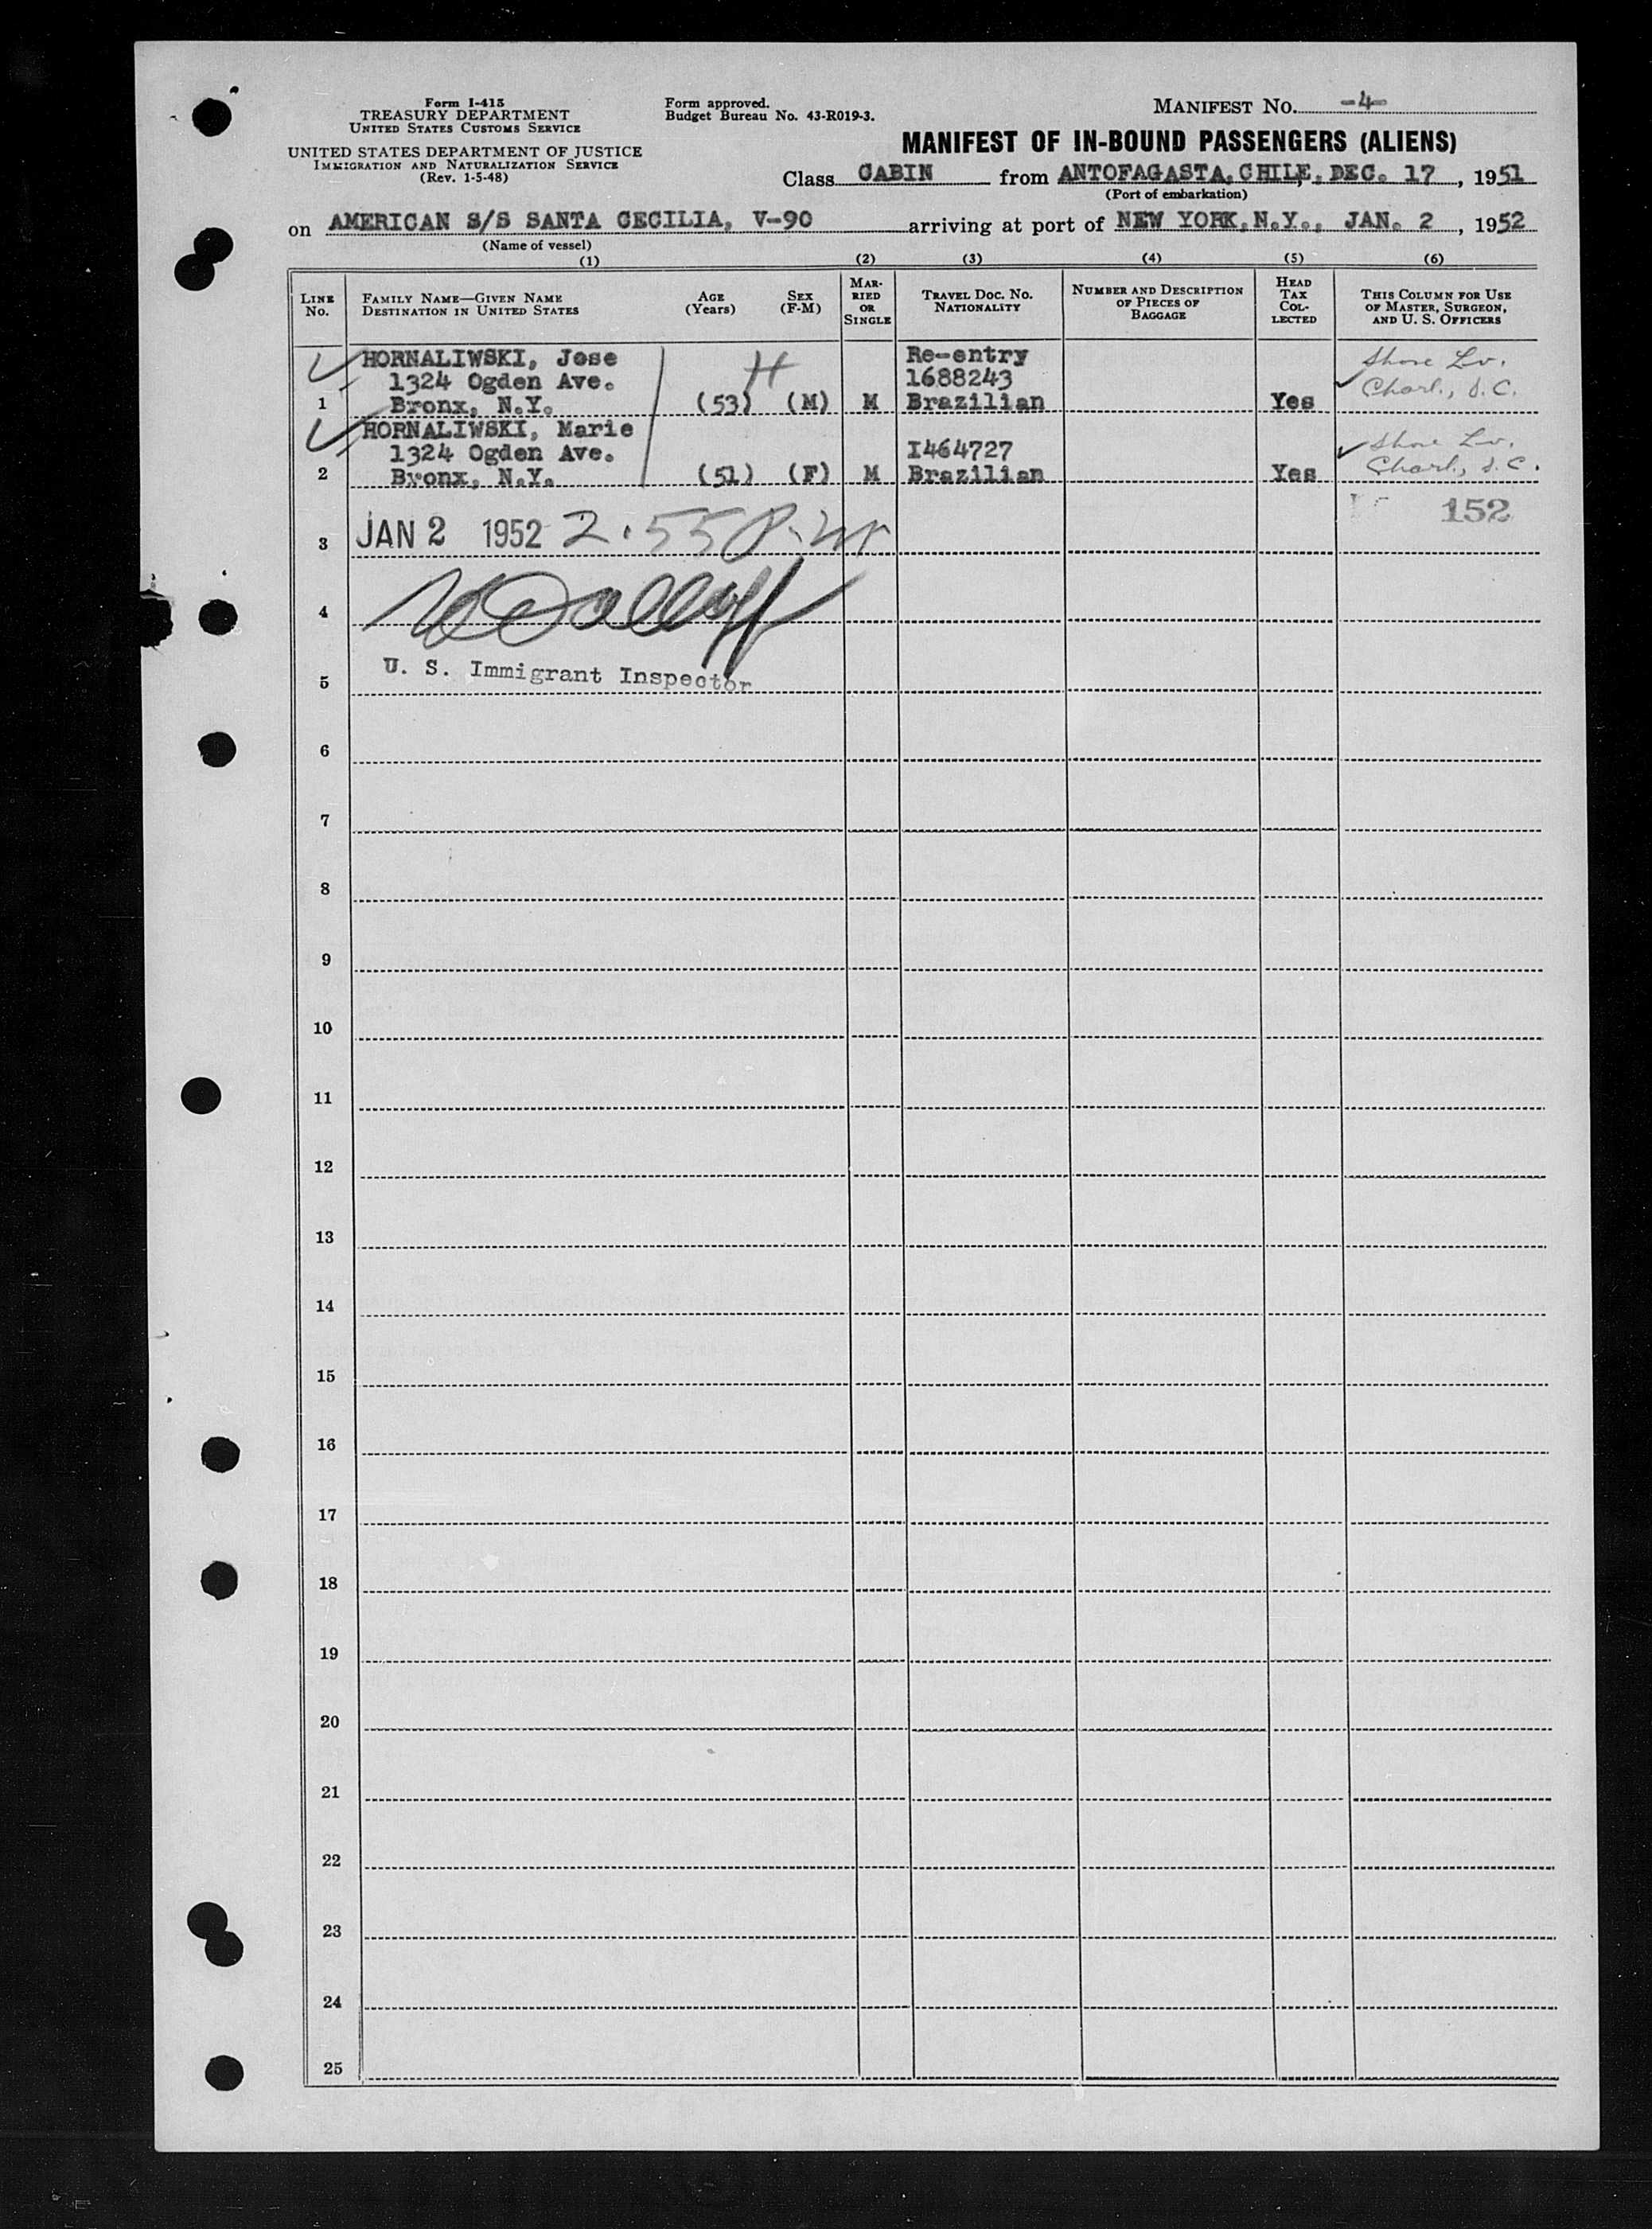 Form I-415
TREASURY DEPARTMENT
UNITED STATES CUSTOMS SERVICE
UNITED STATES DEPARTMENT OF JUSTICE
IMMIGRATION AND NATURALIZATION SERVICE
(Rev. 1-5-48)
Form approved.
Budget Bureau No. 43-R019-3.
MANIFEST NO. -4-
MANIFEST OF IN-BOUND PASSENGERS (ALIENS)
Class CABIN from ANTOFAGASTA, CHILE, DEC. 17, 1951
(Port of embarkation)
on AMERICAN S/S SANTA CECILIA, V-90 arriving at port of NEW YORK, N.Y., JAN. 2, 1952
(Name of vessel)
(1) (2) (3) (4) (5) (6)
LINE No.
FAMILY NAME—GIVEN NAME
DESTINATION IN UNITED STATES
AGE (Years)
SEX (F-M)
MARRIED OR SINGLE
TRAVEL DOC. NO.
NATIONALITY
NUMBER AND DESCRIPTION OF PIECES OF BAGGAGE
HEAD TAX COLLECTED
THIS COLUMN FOR USE OF MASTER, SURGEON, AND U. S. OFFICERS
HORNALIWSKI, Jose Re-entry Shore Lv.
1324 Ogden Ave. H 1688243 Charl., S.C.
1 Bronx, N.Y. (53) (M) M Brazilian Yes
HORNALIWSKI, Marie Shore Lv.
1324 Ogden Ave. I464727 Charl., S.C.
2 Bronx, N.Y. (51) (F) M Brazilian Yes
152
3 JAN 2 1952 2.55 P.M
4
5 U. S. Immigrant Inspector
6
7
8
9
10
11
12
13
14
15
16
17
18
19
20
21
22
23
24
25